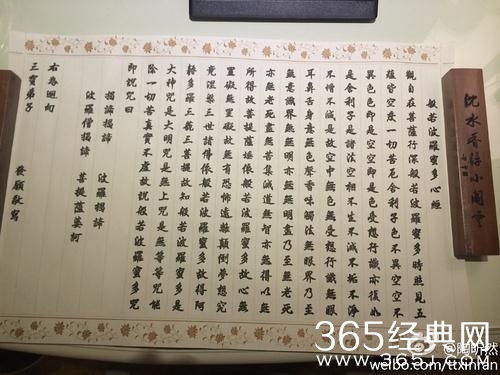 般若波羅蜜多心經
觀自在菩薩行深般若波羅蜜多時照見五
蘊皆空度一切苦厄舍利子色不異空空不
異色色即是空空即是色受想行識亦復如
是舍利子是諸法空相不生不滅不垢不淨
不增不減是故空中無色無受想行識無眼
耳鼻舌身意無色聲香味觸法無眼界乃至
無意識界無無明亦無無明盡乃至無老死
亦無老死盡無苦集滅道無智亦無得以無
所得故菩提薩埵依般若波羅蜜多故心無
罣礙無罣礙故無有恐怖遠離顛倒夢想究
竟涅槃三世諸佛依般若波羅蜜多故得阿
耨多羅三藐三菩提故知般若波羅蜜多是
大神咒是大明咒是無上咒是無等等咒能
除一切苦真實不虛故說般若波羅蜜多咒
即說咒曰
揭諦揭諦 波羅揭諦
波羅僧揭諦 菩提薩婆訶
右恭迴向
三寶弟子 發願敬寫
沈水香 小閣
365经典网
www.365J
weibo.com/txinran